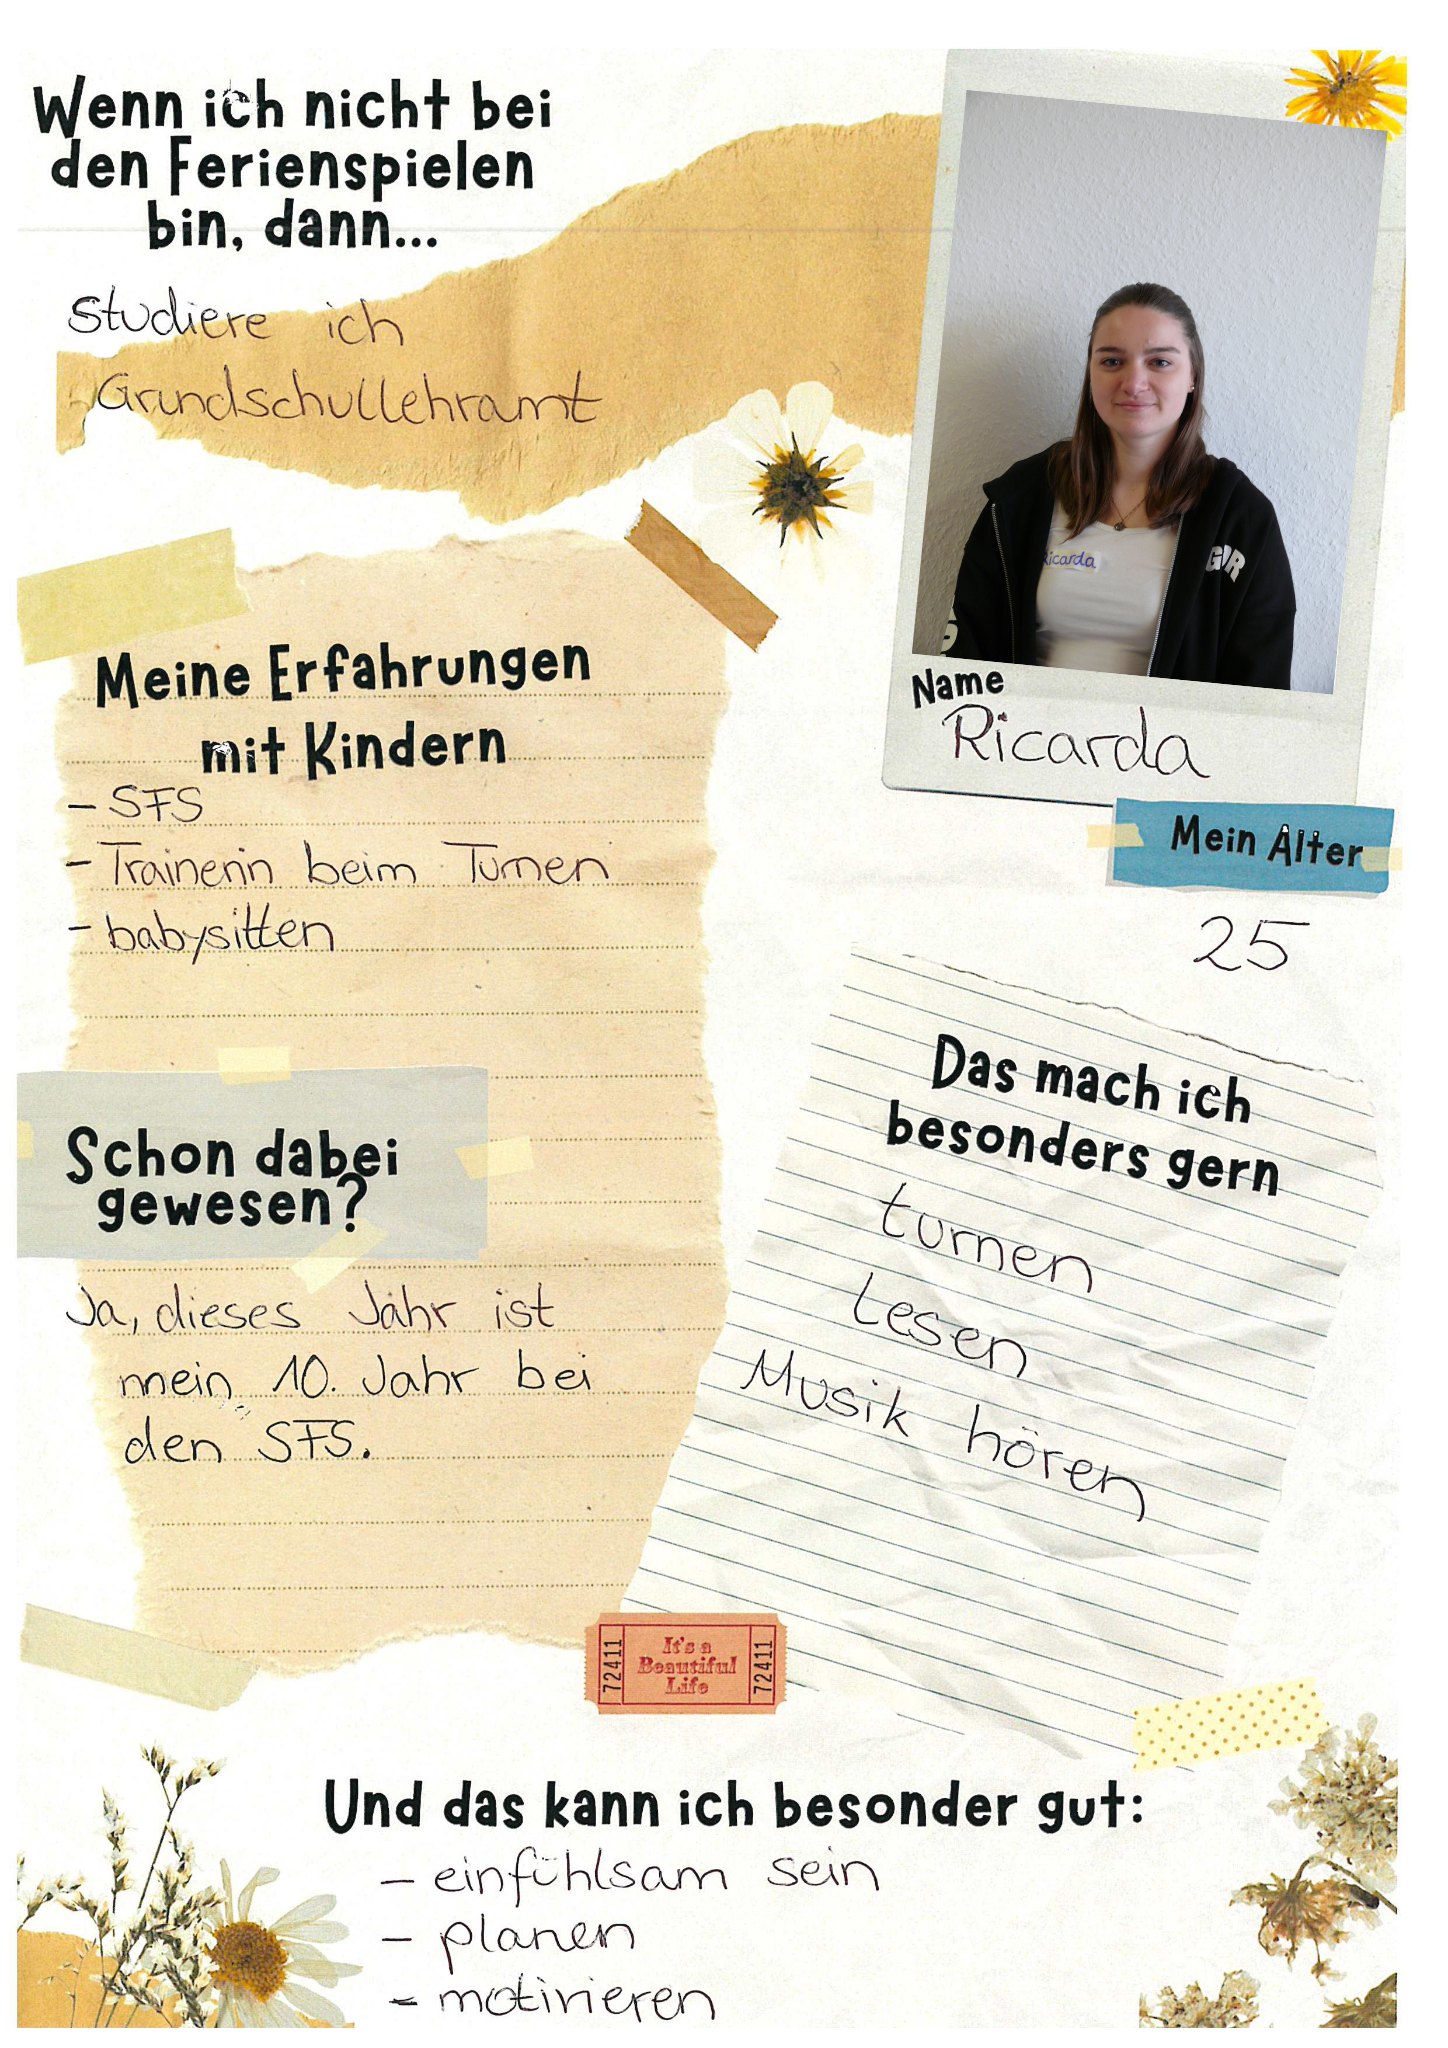 Wenn ich nicht bei
den Ferienspielen
bin, dann...
studiere ich
Grundschullehramt
Ricarda
GNR
Name
Ricarda
Mein Alter
25
Meine Erfahrungen
mit Kindern
- SFS
- Trainerin beim Turnen
- babysitten
Schon dabei
gewesen?
Ja, dieses Jahr ist
mein 10. Jahr bei
den SFS.
Das mach ich
besonders gern
turnen
Lesen
Musik hören
72411
It's a
Beautiful
Life
72411
Und das kann ich besonder gut:
- einfühlsam sein
- planen
- motivieren